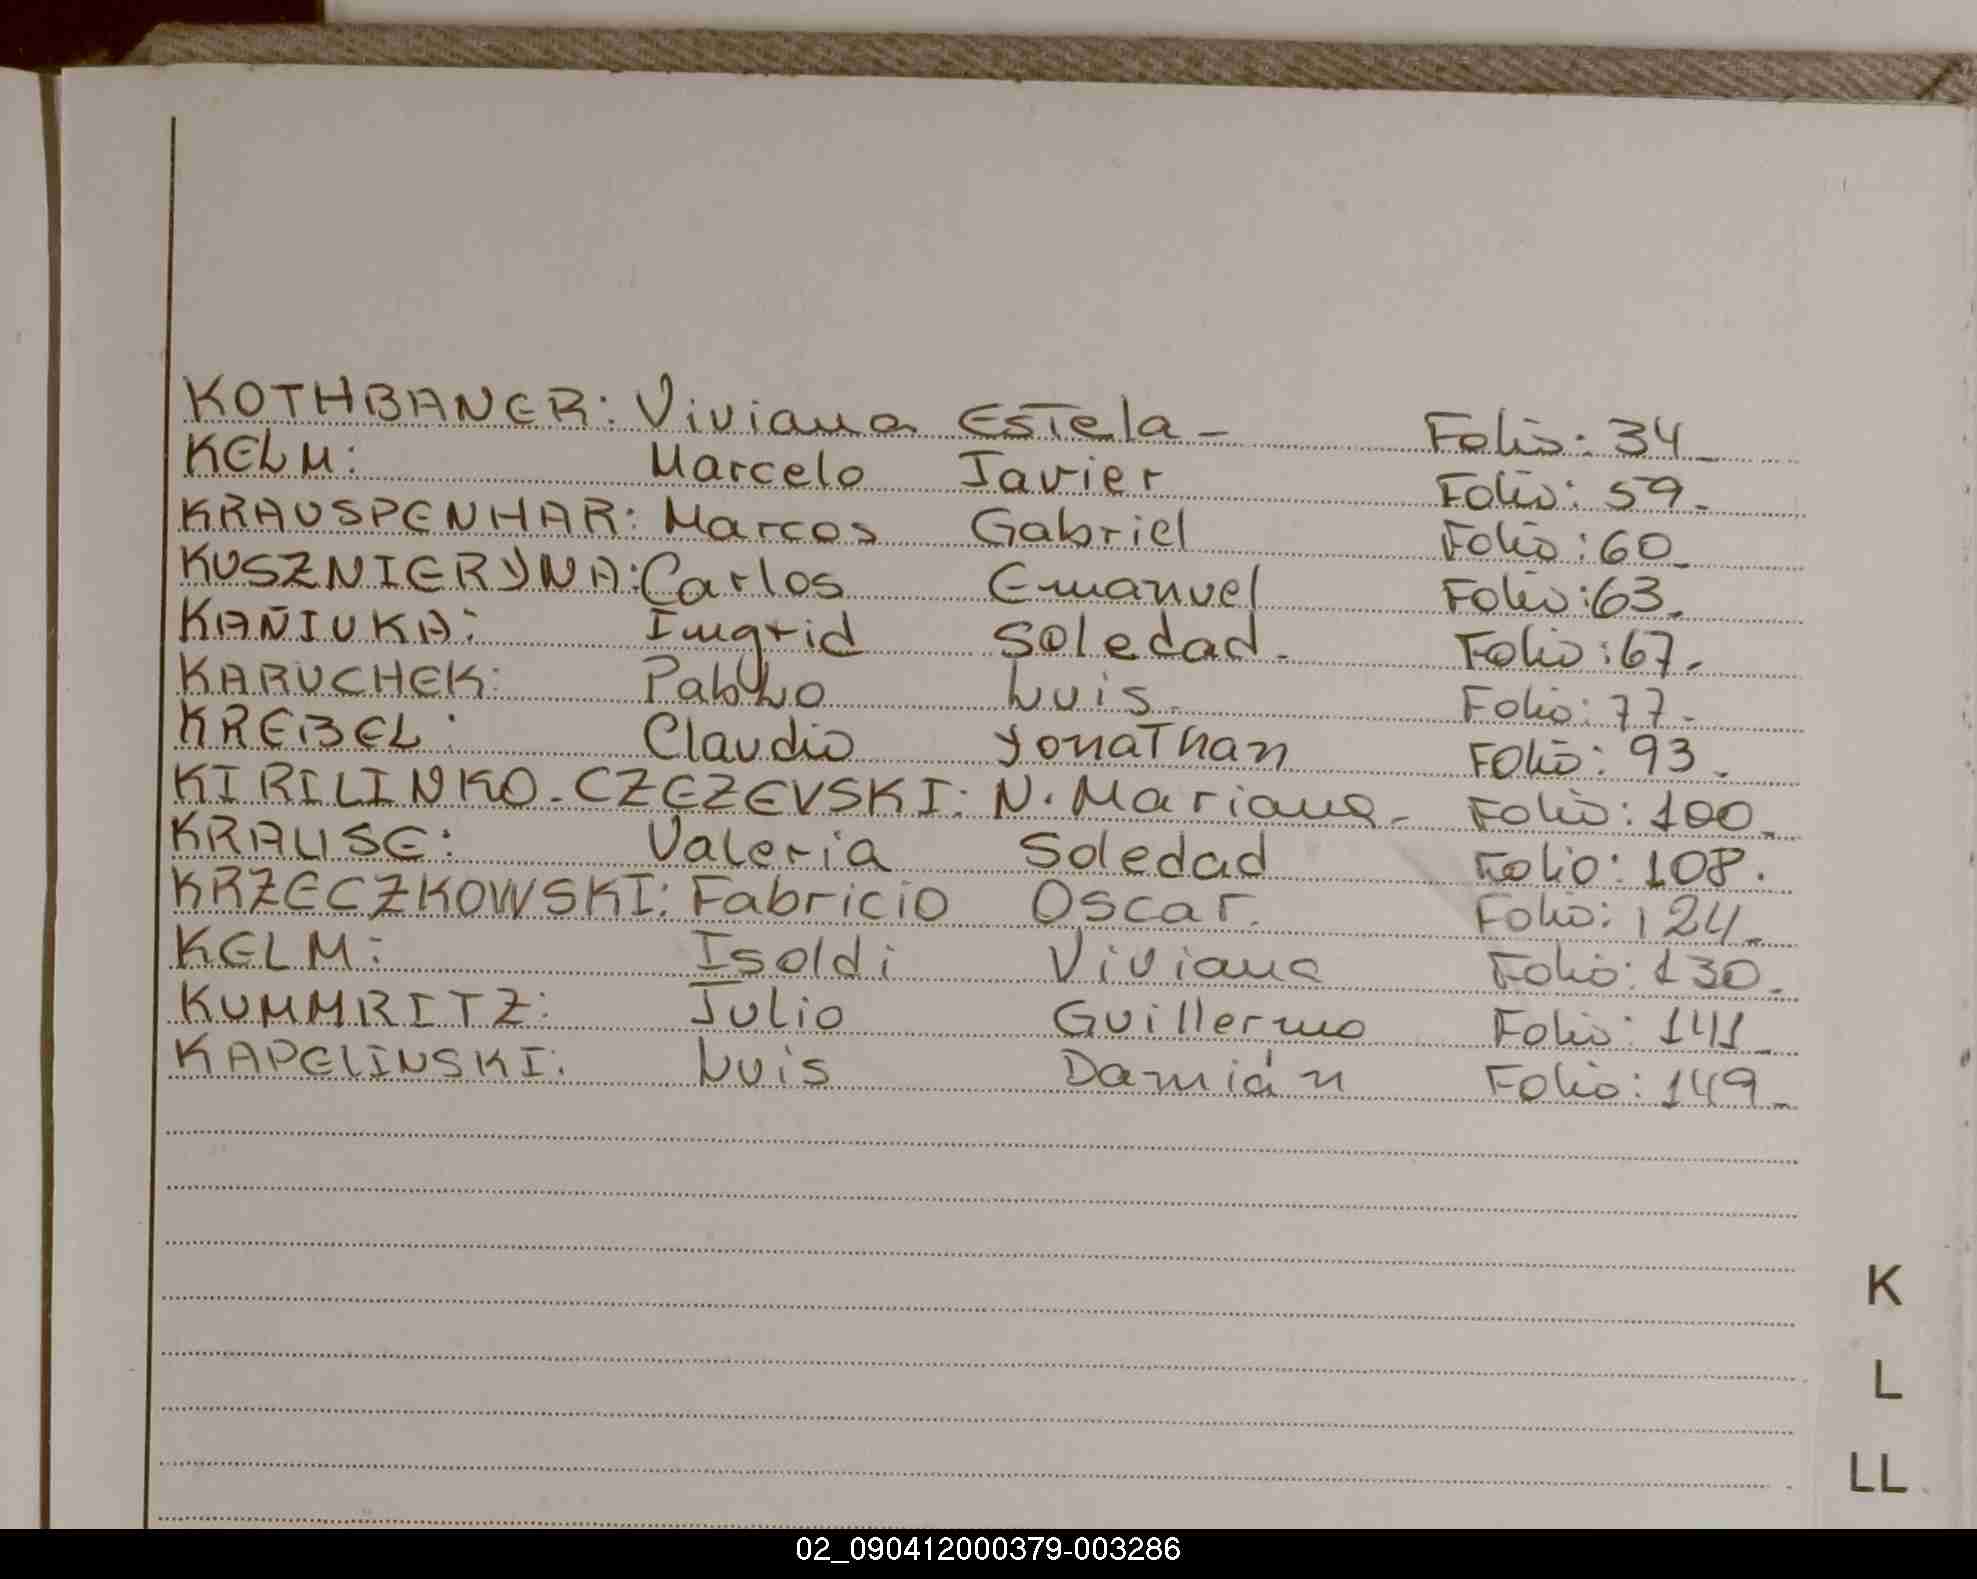 KOTHBANER: Viviana Estela - Folio: 34_
KELM: Marcelo Javier Folio: 59_
KRAUSPENHAR: Marcos Gabriel Folio: 60_
KUSZNIERYNA: Carlos Emanuel Folio: 63_
KAÑIUKA: Imgrid Soledad_ Folio: 67_
KARUCHEK: Pablo Luis_ Folio: 77_
KREIBEL: Claudio Yonathan Folio: 93_
KIRILINKO_CZEZEVSKI: N. Mariana_ Folio: 100_
KRAUSE: Valeria Soledad Folio: 108.
KRZECZKOWSKI: Fabricio Oscar. Folio: 124_
KELM: Isoldi Viviana Folio: 130_
KUMMRITZ: Julio Guillermo Folio: 141_
KAPELINSKI: Luis Damián Folio: 149_
K
L
LL
02_090412000379-003286